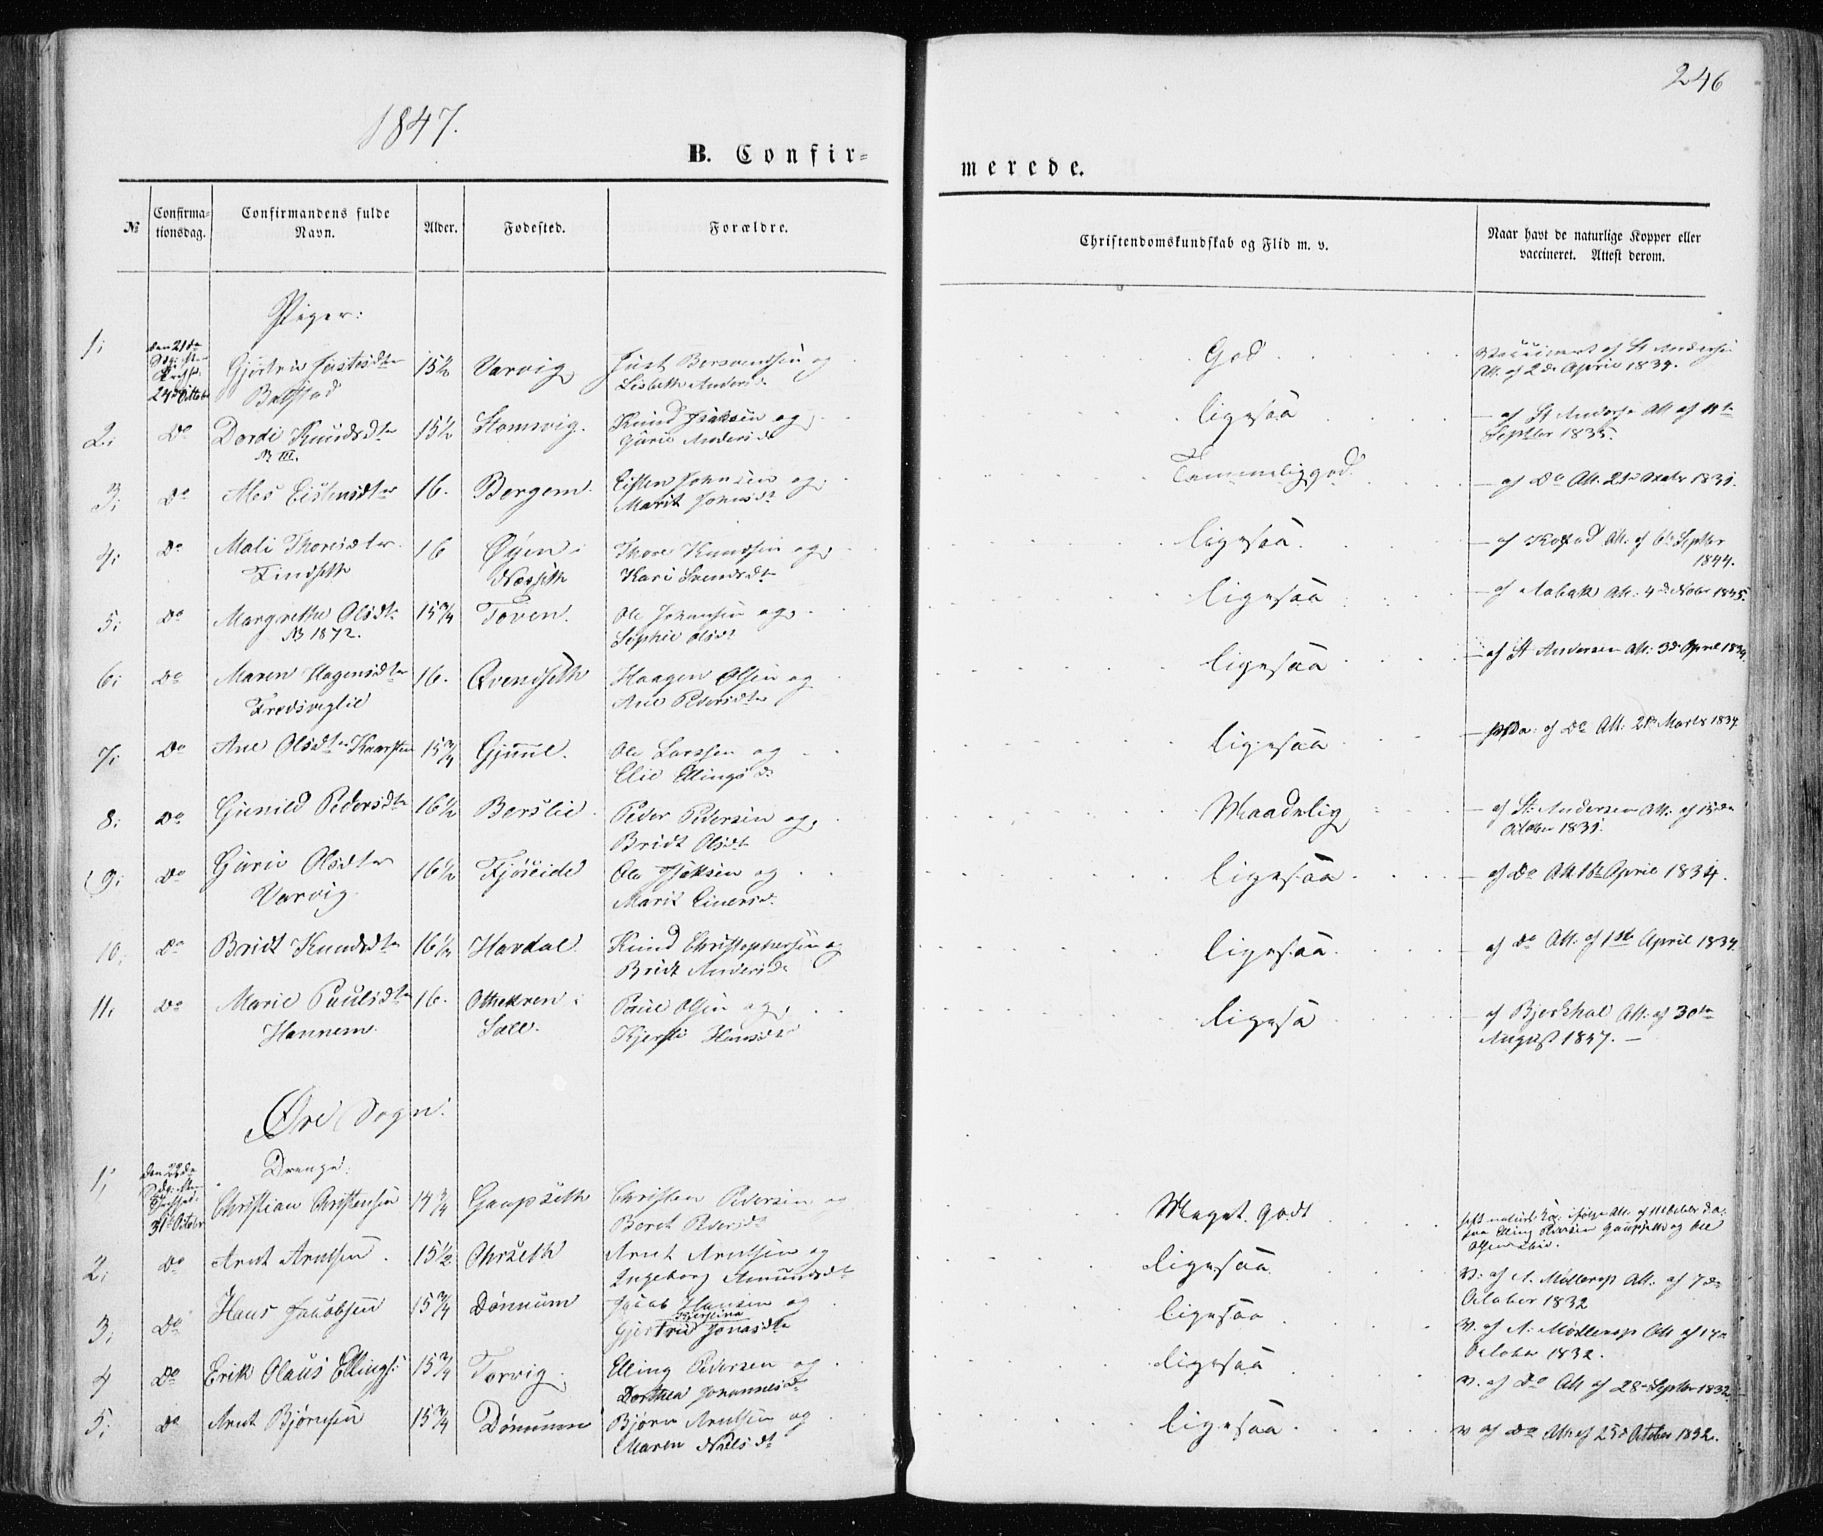 246
1847.
B. Confirmerede.
№ Confirmationsdag. Confirmandens fulde Navn. Alder. Fødested. Forældre. Christendomskundskab og Flid m. v. Naar havt de naturlige Kopper eller vaccineret. Attest derom.
Piger:
1; den 21de 24de October Gjertrud Justesdtr 15½ Varvig Just Bersvendsen og God af St Andersen
Batstad Lisbeth Andersd. Att. af 2de April 1834.
2; Do Dordi Knudsdtr 15½ Stomsvig. Knud Isaksen og ligesaa – af St Andersen Att af 11te
N III. Guri Andersd Septber 1835.
3; Do Mos Eistensdtr 16. Bergem. Eisten Johnsen og Temmelig god. – af Do Att. 21de Octobr 1831.
Marit Johnsdt
4; Do Mali Thoresdtr 16 Øyen i Thore Knudsen og ligesaa. – af Att. af 6te Septbr
Findseth Næsseth Kari Svendsdt 1844.
5; Do Margrethe Olsdt 15¾ Toven. Ole Johansen og ligesaa – af Aabak Att. 4de Nobr 1845.
N 1872. Sophie Olsdt
6; Do Maren Hagensdtr 16. Qvendseth Haagen Olsen og ligesaa – af St Andersen Att. 3de April 1834.
Fredsviglie Ane Pedersdtr
7; Do Ane Olsdtr 15¾ Gjuul. Ole Larssen og ligesaa af Do Att. 21de Marts 1834
Elie Ellingsd
8; Do Gunild Pedersdtr 16½ Berslie Peder Pedersen og Maadelig – af St: Andersen Att. af 15de
Bridt Olsdt October 1831.
9; Do Guri Olsdtr 16½ Fjøseide Ole Isaksen og ligesaa – af Do Att 16de April 1834.
Varvig. Marit Einersd.
10; Do Bridt Knudsdtr 16½ Havdal Knud Christophersen og ligesaa. af Do Att. af 1ste April 1834.
Bridt Andersd
11; Do Marie Paulsdtr 16. i Paul Olsen og ligesaa – af Bjerkhol Att. af 30te
Hannem Kjersti Hansdt August 1847. –
Øre Sogn:
Drenge:
1; den 22de 31te October Christian Christensen 14¾ Gaupseth Christen Pedersen og Meget Godt
Beret Pedersd
2; Do Arnt Arntsen 15½ Ohrseth Arnt Arntsen og ligesaa V. af N. Møllerop Att. af 7de
Ingeborg Amundsdt October 1832
3; Do Hans Jacobsen 15¾ Dønnum Jacob Hansen og ligesaa V. af N. Møllerop Att af 14de
Kjerstina
Gjertrud Jonasdt October 1832.
4 Do Erik Olaus Ellings: 15¾ Torvig. Elling Pedersen og ligesaa V. af Do Att af 28de Septbr 1832
Dorthea Johannesd
5; Do Arnt Bjørnsen 15¾ Dønnum Bjørn Arntsen og ligesaa. V af Do Att af 25de October 1832.
Maren Nilsdt